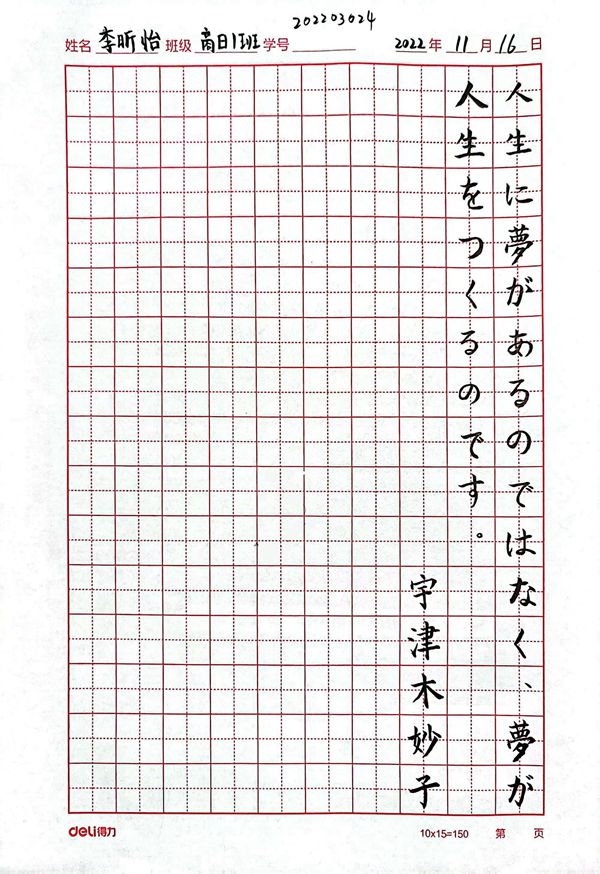 202203024
姓名 李昕怡 班级 商日1班 学号
2022 年 11 月 16 日
人生に夢があるのではなく、夢が
人生をつくるのです。
宇津木妙子
deli得力
10x15=150 第 页